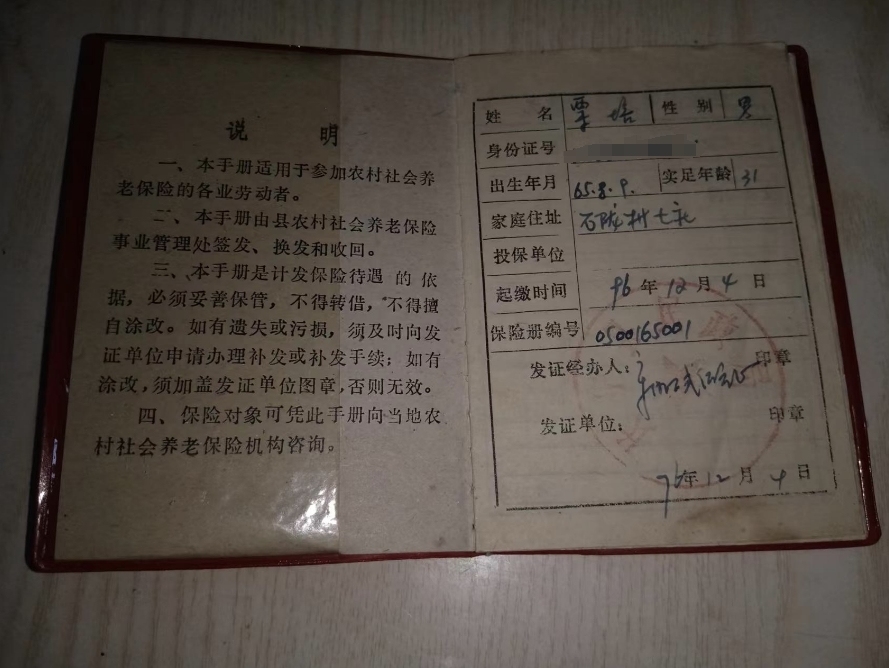 说 明
一、本手册适用于参加农村社会养
老保险的各业劳动者。
二、本手册由县农村社会养老保险
事业管理处签发、换发和收回。
三、本手册是计发保险待遇的依
据，必须妥善保管，不得转借，不得擅
自涂改。如有遗失或污损，须及时向发
证单位申请办理补发或补发手续；如有
涂改，须加盖发证单位图章，否则无效。
四、保险对象可凭此手册向当地农
村社会养老保险机构咨询。
姓 名 性 别 男
身份证号
出生年月 65.8.9. 实足年龄 31
家庭住址 石陇村七
投保单位
起缴时间 96年12月4日
保险册编号 0500165001
发证经办人： 印章
发证单位： 印章
96年12月4日